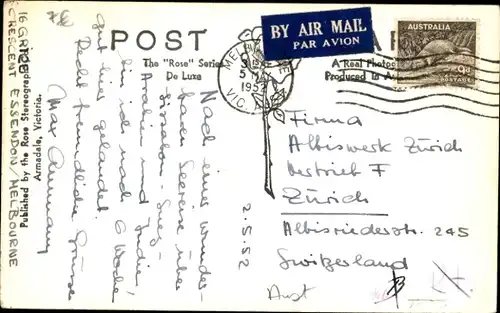 POST
The "Rose" Series
De Luxe
A Real Photo
Produced in A
BY AIR MAIL
PAR AVION
AUSTRALIA
POSTAGE
MELBOURNE
3
5 M
1952
VIC.
Published by the Rose Stereograph
Armadale, Victoria.
16 GRICE
CRESCENT ESSENDON/MELBOURNE
2.5.52
Nach einer wunder-
baren Seereise über
Lissabon - Suez -
Arabien und Indien
bin ich nach 6 Wochen
gut hier gelandet.
Recht freundliche Grüsse
Max
Firma
Albiswerk Zürich
Vertrieb F
Zürich
Albisriederstr. 245
Switzerland